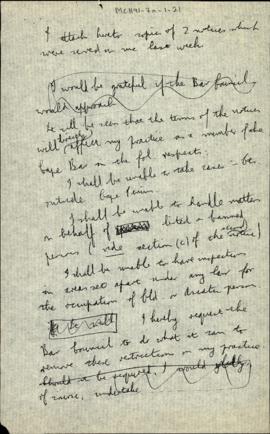 MCH91-7a-1-21
I attach hereto copies of 2 notices which
were served on me last week.
I would be grateful if the Bar Council
would approach
It will be seen that the terms of the notices
will affect my practice as a member of the
Cape Bar in the fol respects:
I shall be unable to take cases
outside Cape Penin.
I shall be unable to handle matters
on behalf of listed or banned
persons (vide section (c) of the notice)
I shall be unable to have inspections
in areas set apart under any law for
the occupation of Bld or Asiatic persons
I hereby request the
Bar Council to do what it can to
remove these restrictions on my practice.
Should it be required, I would gladly
of course, undertake